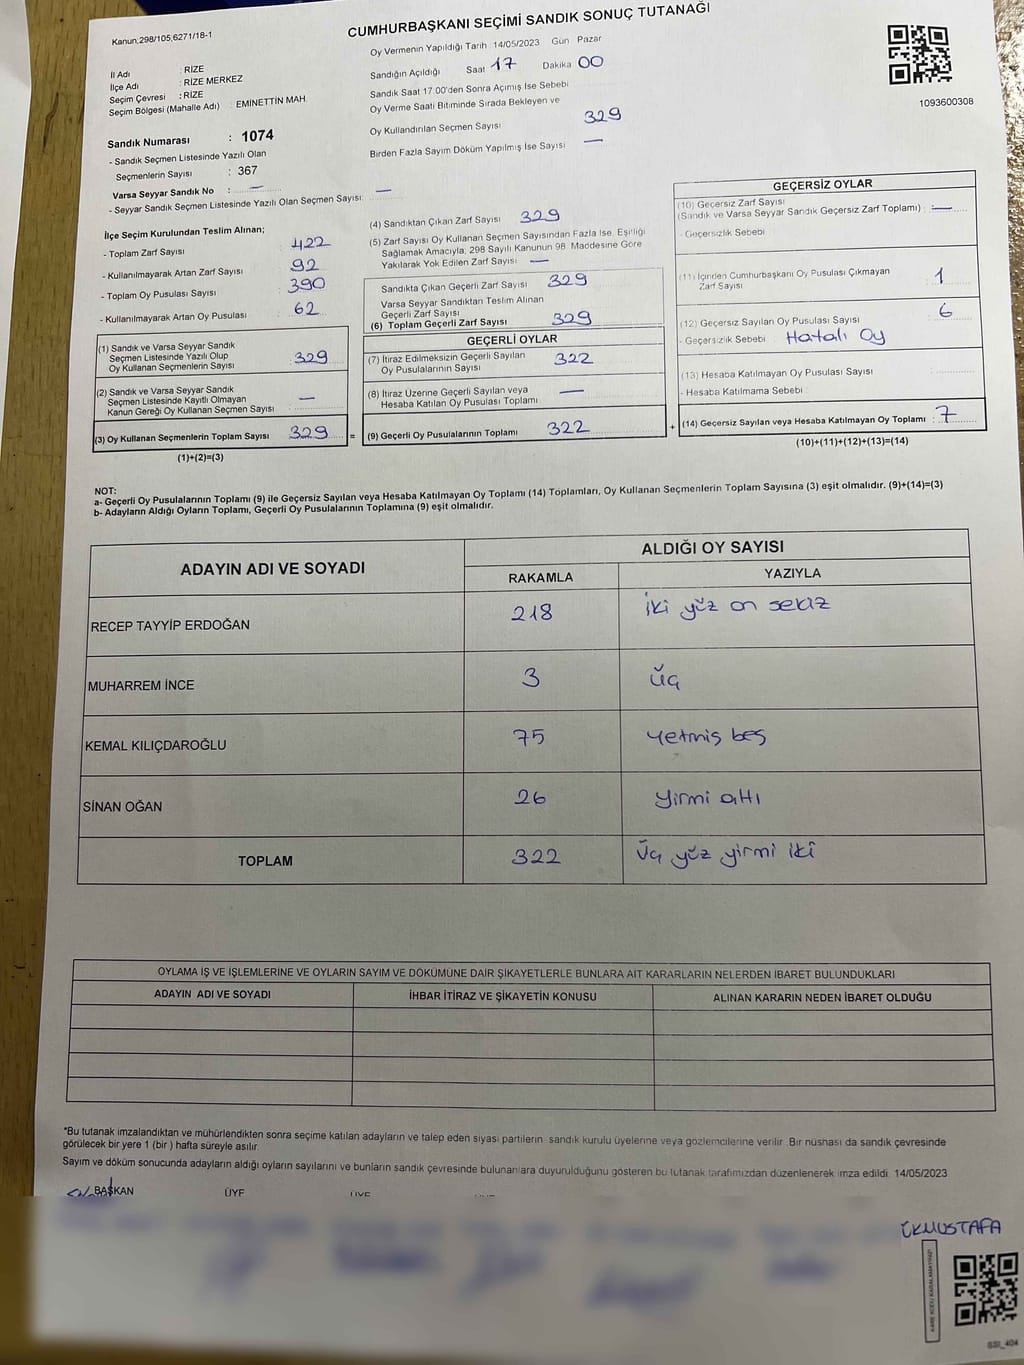 CUMHURBAŞKANI SEÇİMİ SANDIK SONUÇ TUTANAĞI
Kanun,298/105,6271/18-1
İl Adı : RİZE
İlçe Adı : RİZE MERKEZ
Seçim Çevresi : RİZE
Seçim Bölgesi (Mahalle Adı) : EMİNETTİN MAH
Sandık Numarası : 1074
- Sandık Seçmen Listesinde Yazılı Olan
Seçmenlerin Sayısı : 367
Varsa Seyyar Sandık No : —
- Seyyar Sandık Seçmen Listesinde Yazılı Olan Seçmen Sayısı: —
Oy Vermenin Yapıldığı Tarih 14/05/2023 Gün Pazar
Sandığın Açıldığı Saat 17 Dakika 00
Sandık Saat 17:00'den Sonra Açımış İse Sebebi
Oy Verme Saati Bitiminde Sırada Bekleyen ve
Oy Kullandırılan Seçmen Sayısı 329
Birden Fazla Sayım Döküm Yapılmış İse Sayısı —
1093600308
İlçe Seçim Kurulundan Teslim Alınan;
- Toplam Zarf Sayısı 422
- Kullanılmayarak Artan Zarf Sayısı 92
- Toplam Oy Pusulası Sayısı 390
- Kullanılmayarak Artan Oy Pusulası 62
(1) Sandık ve Varsa Seyyar Sandık
Seçmen Listesinde Yazılı Olup
Oy Kullanan Seçmenlerin Sayısı 329
(2) Sandık ve Varsa Seyyar Sandık
Seçmen Listesinde Kayıtlı Olmayan
Kanun Gereği Oy Kullanan Seçmen Sayısı : —
(3) Oy Kullanan Seçmenlerin Toplam Sayısı 329
(1)+(2)=(3)
(4) Sandıktan Çıkan Zarf Sayısı 329
(5) Zarf Sayısı Oy Kullanan Seçmen Sayısından Fazla İse, Eşitliği
Sağlamak Amacıyla, 298 Sayılı Kanunun 98. Maddesine Göre
Yakılarak Yok Edilen Zarf Sayısı —
Sandıkta Çıkan Geçerli Zarf Sayısı 329
Varsa Seyyar Sandıktan Teslim Alınan
Geçerli Zarf Sayısı
(6) Toplam Geçerli Zarf Sayısı 329
GEÇERLİ OYLAR
(7) İtiraz Edilmeksizin Geçerli Sayılan
Oy Pusulalarının Sayısı 322
(8) İtiraz Üzerine Geçerli Sayılan veya
Hesaba Katılan Oy Pusulası Toplamı —
= (9) Geçerli Oy Pusulalarının Toplamı 322
GEÇERSİZ OYLAR
(10) Geçersiz Zarf Sayısı
(Sandık ve Varsa Seyyar Sandık Geçersiz Zarf Toplamı) : —
- Geçersizlik Sebebi
(11) İçinden Cumhurbaşkanı Oy Pusulası Çıkmayan
Zarf Sayısı 1
(12) Geçersiz Sayılan Oy Pusulası Sayısı 6
- Geçersizlik Sebebi Hatalı Oy
(13) Hesaba Katılmayan Oy Pusulası Sayısı
- Hesaba Katılmama Sebebi
+ (14) Geçersiz Sayılan veya Hesaba Katılmayan Oy Toplamı : 7
(10)+(11)+(12)+(13)=(14)
NOT:
a- Geçerli Oy Pusulalarının Toplamı (9) ile Geçersiz Sayılan veya Hesaba Katılmayan Oy Toplamı (14) Toplamları, Oy Kullanan Seçmenlerin Toplam Sayısına (3) eşit olmalıdır. (9)+(14)=(3)
b- Adayların Aldığı Oyların Toplamı, Geçerli Oy Pusulalarının Toplamına (9) eşit olmalıdır.
ADAYIN ADI VE SOYADI
ALDIĞI OY SAYISI
RAKAMLA YAZIYLA
RECEP TAYYİP ERDOĞAN 218 iki yüz on sekiz
MUHARREM İNCE 3 üç
KEMAL KILIÇDAROĞLU 75 yetmiş beş
SİNAN OĞAN 26 yirmi altı
TOPLAM 322 üç yüz yirmi iki
OYLAMA İŞ VE İŞLEMLERİNE VE OYLARIN SAYIM VE DÖKÜMÜNE DAİR ŞİKAYETLERLE BUNLARA AİT KARARLARIN NELERDEN İBARET BULUNDUKLARI
ADAYIN ADI VE SOYADI İHBAR İTİRAZ VE ŞİKAYETİN KONUSU ALINAN KARARIN NEDEN İBARET OLDUĞU
*Bu tutanak imzalandıktan ve mühürlendikten sonra seçime katılan adayların ve talep eden siyasi partilerin sandık kurulu üyelerine veya gözlemcilerine verilir .Bir nüshası da sandık çevresinde
görülecek bir yere 1 (bir ) hafta süreyle asılır.
Sayım ve döküm sonucunda adayların aldığı oyların sayılarını ve bunların sandık çevresinde bulunanlara duyurulduğunu gösteren bu tutanak tarafımızdan düzenlenerek imza edildi. 14/05/2023
BAŞKAN ÜYE ÜYE ÜYE